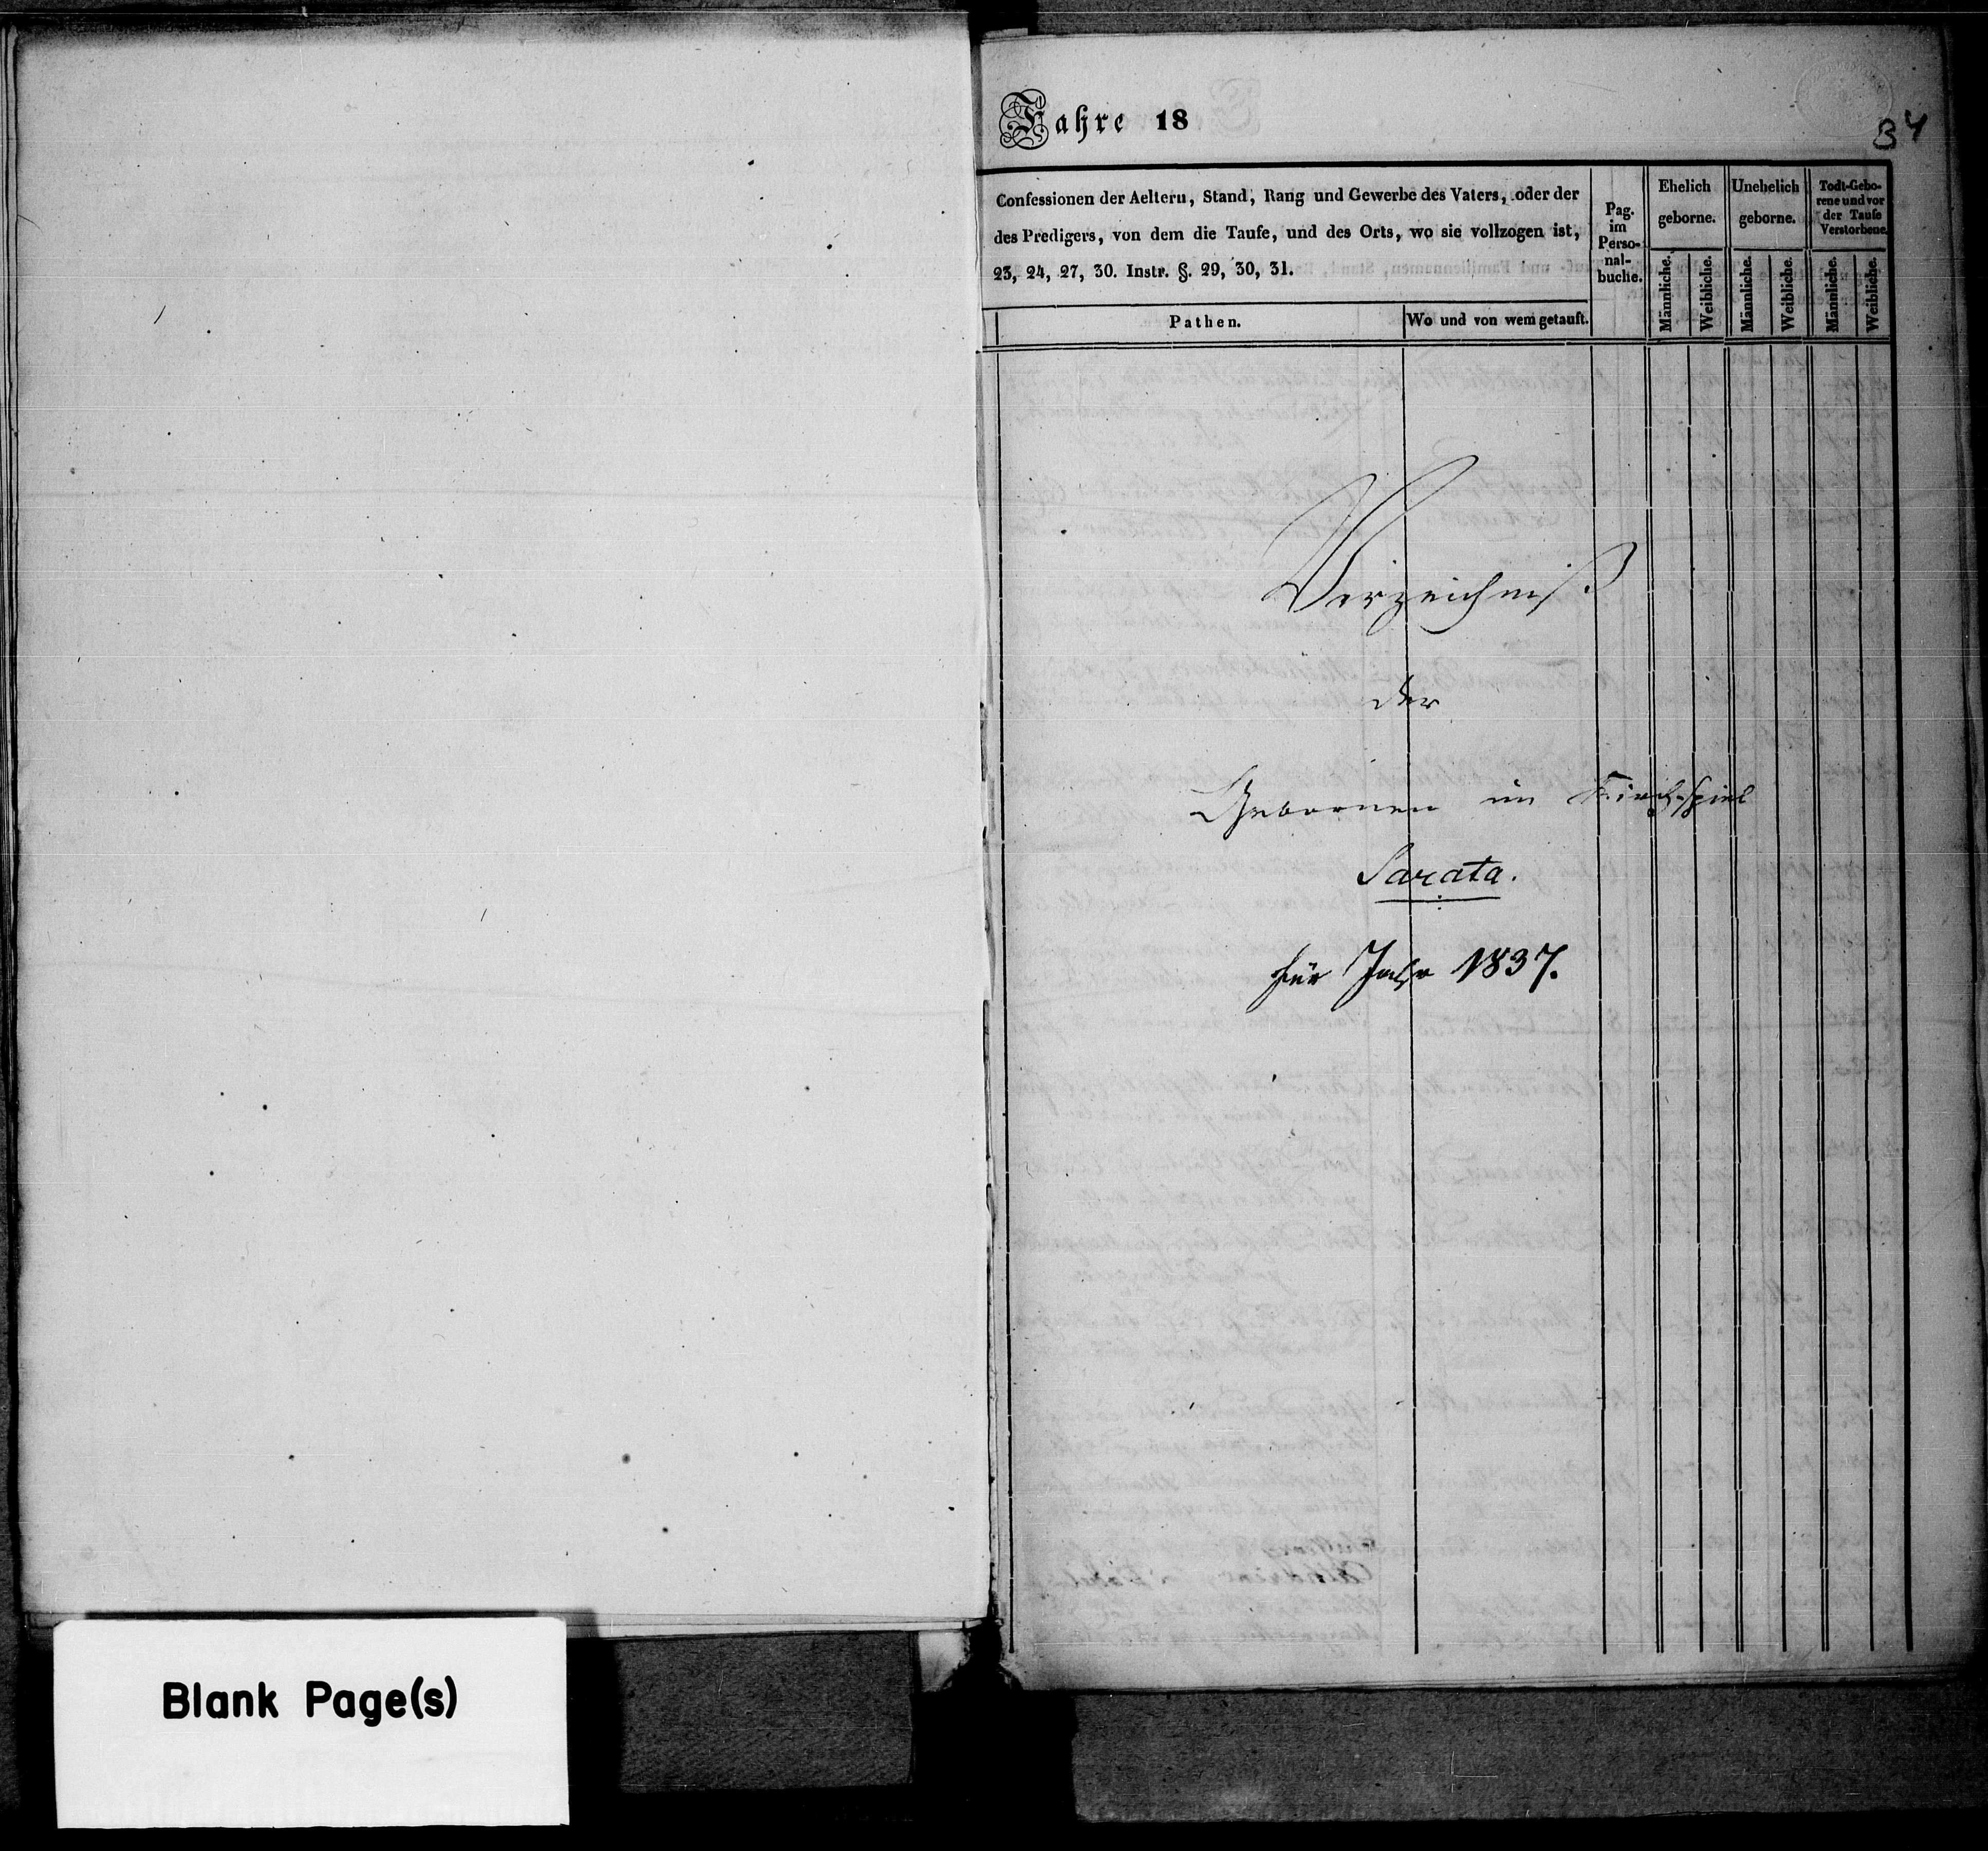 Jahre 18
34
Confessionen der Aeltern, Stand, Rang und Gewerbe des Vaters, oder der
des Predigers, von dem die Taufe, und des Orts, wo sie vollzogen ist,
23, 24, 27, 30. Instr. §. 29, 30, 31.
Pathen.
Wo und von wem getauft.
Pag.
im
Perso-
nal-
buche.
Ehelich
geborne.
Männliche.
Weibliche.
Unehelich
geborne.
Männliche.
Weibliche.
Todt-Gebo-
rene und vor
der Taufe
Verstorbene.
Männliche.
Weibliche.
Verzeichniß
der
Gebornen im Kirchspiel
Sarata.
für Jahr 1837.
Blank Page(s)